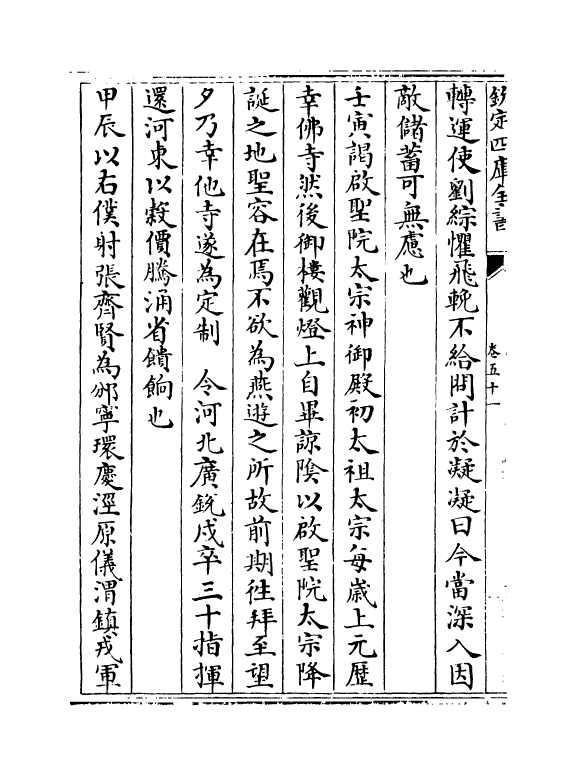 欽定四庫全書
卷五十一
轉運使劉綜懼飛輓不給問計於凝凝曰今當深入因
敵儲蓄可無慮也
壬寅謁啟聖院太宗神御殿初太祖太宗每歲上元歷
幸佛寺然後御樓觀燈上自畢諒隂以啟聖院太宗降
誕之地聖容在焉不欲為燕遊之所故前期徃拜至望
夕乃幸他寺遂為定制　令河北廣銳戍卒三十指揮
還河東以穀價騰涌省饋餉也
甲辰以右僕射張齊賢為邠寧環慶涇原儀渭鎮戎軍